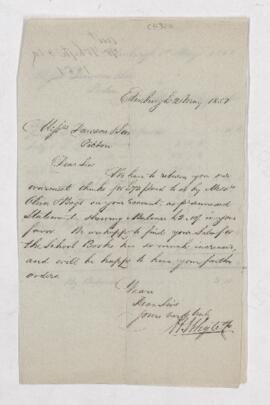 Edinburgh 2 May 1851
Messrs Dawson & Son
Pictou
Dear Sir
We have to return you our
thanks for £70 paid to us by Messrs
Oliver & Boyd on your account, as per annexed
Statement, showing Balance £2. in your
favor. We are happy to find your Sales for
the School Books has so much increased,
and will be happy to have your further
orders
Dear Sirs
yours very truly